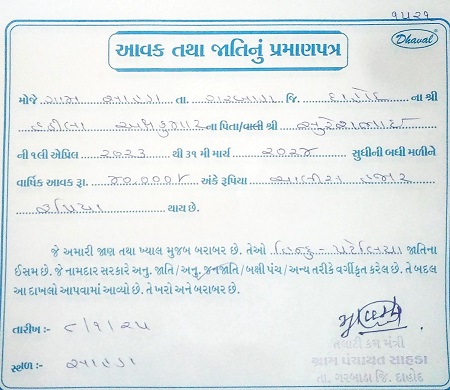 ૧૫૨૧
આવક તથા જાતિનું પ્રમાણપત્ર
Dhaval
મોજે ગામ સાહડા તા. ગરબાડા જિ. દાહોદ ના શ્રી
ના પિતા/વાલી શ્રી સુરેશભાઈ
ની ૧લી એપ્રિલ ૨૦૨૩ થી ૩૧ મી માર્ચ ૨૦૨૪ સુધીની બધી મળીને
વાર્ષિક આવક રૂા. ૪૦,૦૦૦/ અંકે રૂપિયા ચાલીસ હજાર
રૂપિયા થાય છે.
જે અમારી જાણ તથા ખ્યાલ મુજબ બરાબર છે. તેઓ હિન્દુ - પટેલિયા જાતિના
ઈસમ છે. જે નામદાર સરકારે અનુ. જાતિ/અનુ. જનજાતિ/બક્ષી પંચ/અન્ય તરીકે વર્ગીકૃત કરેલ છે. તે બદલ
આ દાખલો આપવામાં આવ્યો છે. તે ખરો અને બરાબર છે.
તારીખ :- ૮/૧/૨૫
તલાટી કમ મંત્રી
સ્થળ :- સાહડા
ગ્રામ પંચાયત સાહડા
તા. ગરબાડા જિ. દાહોદ